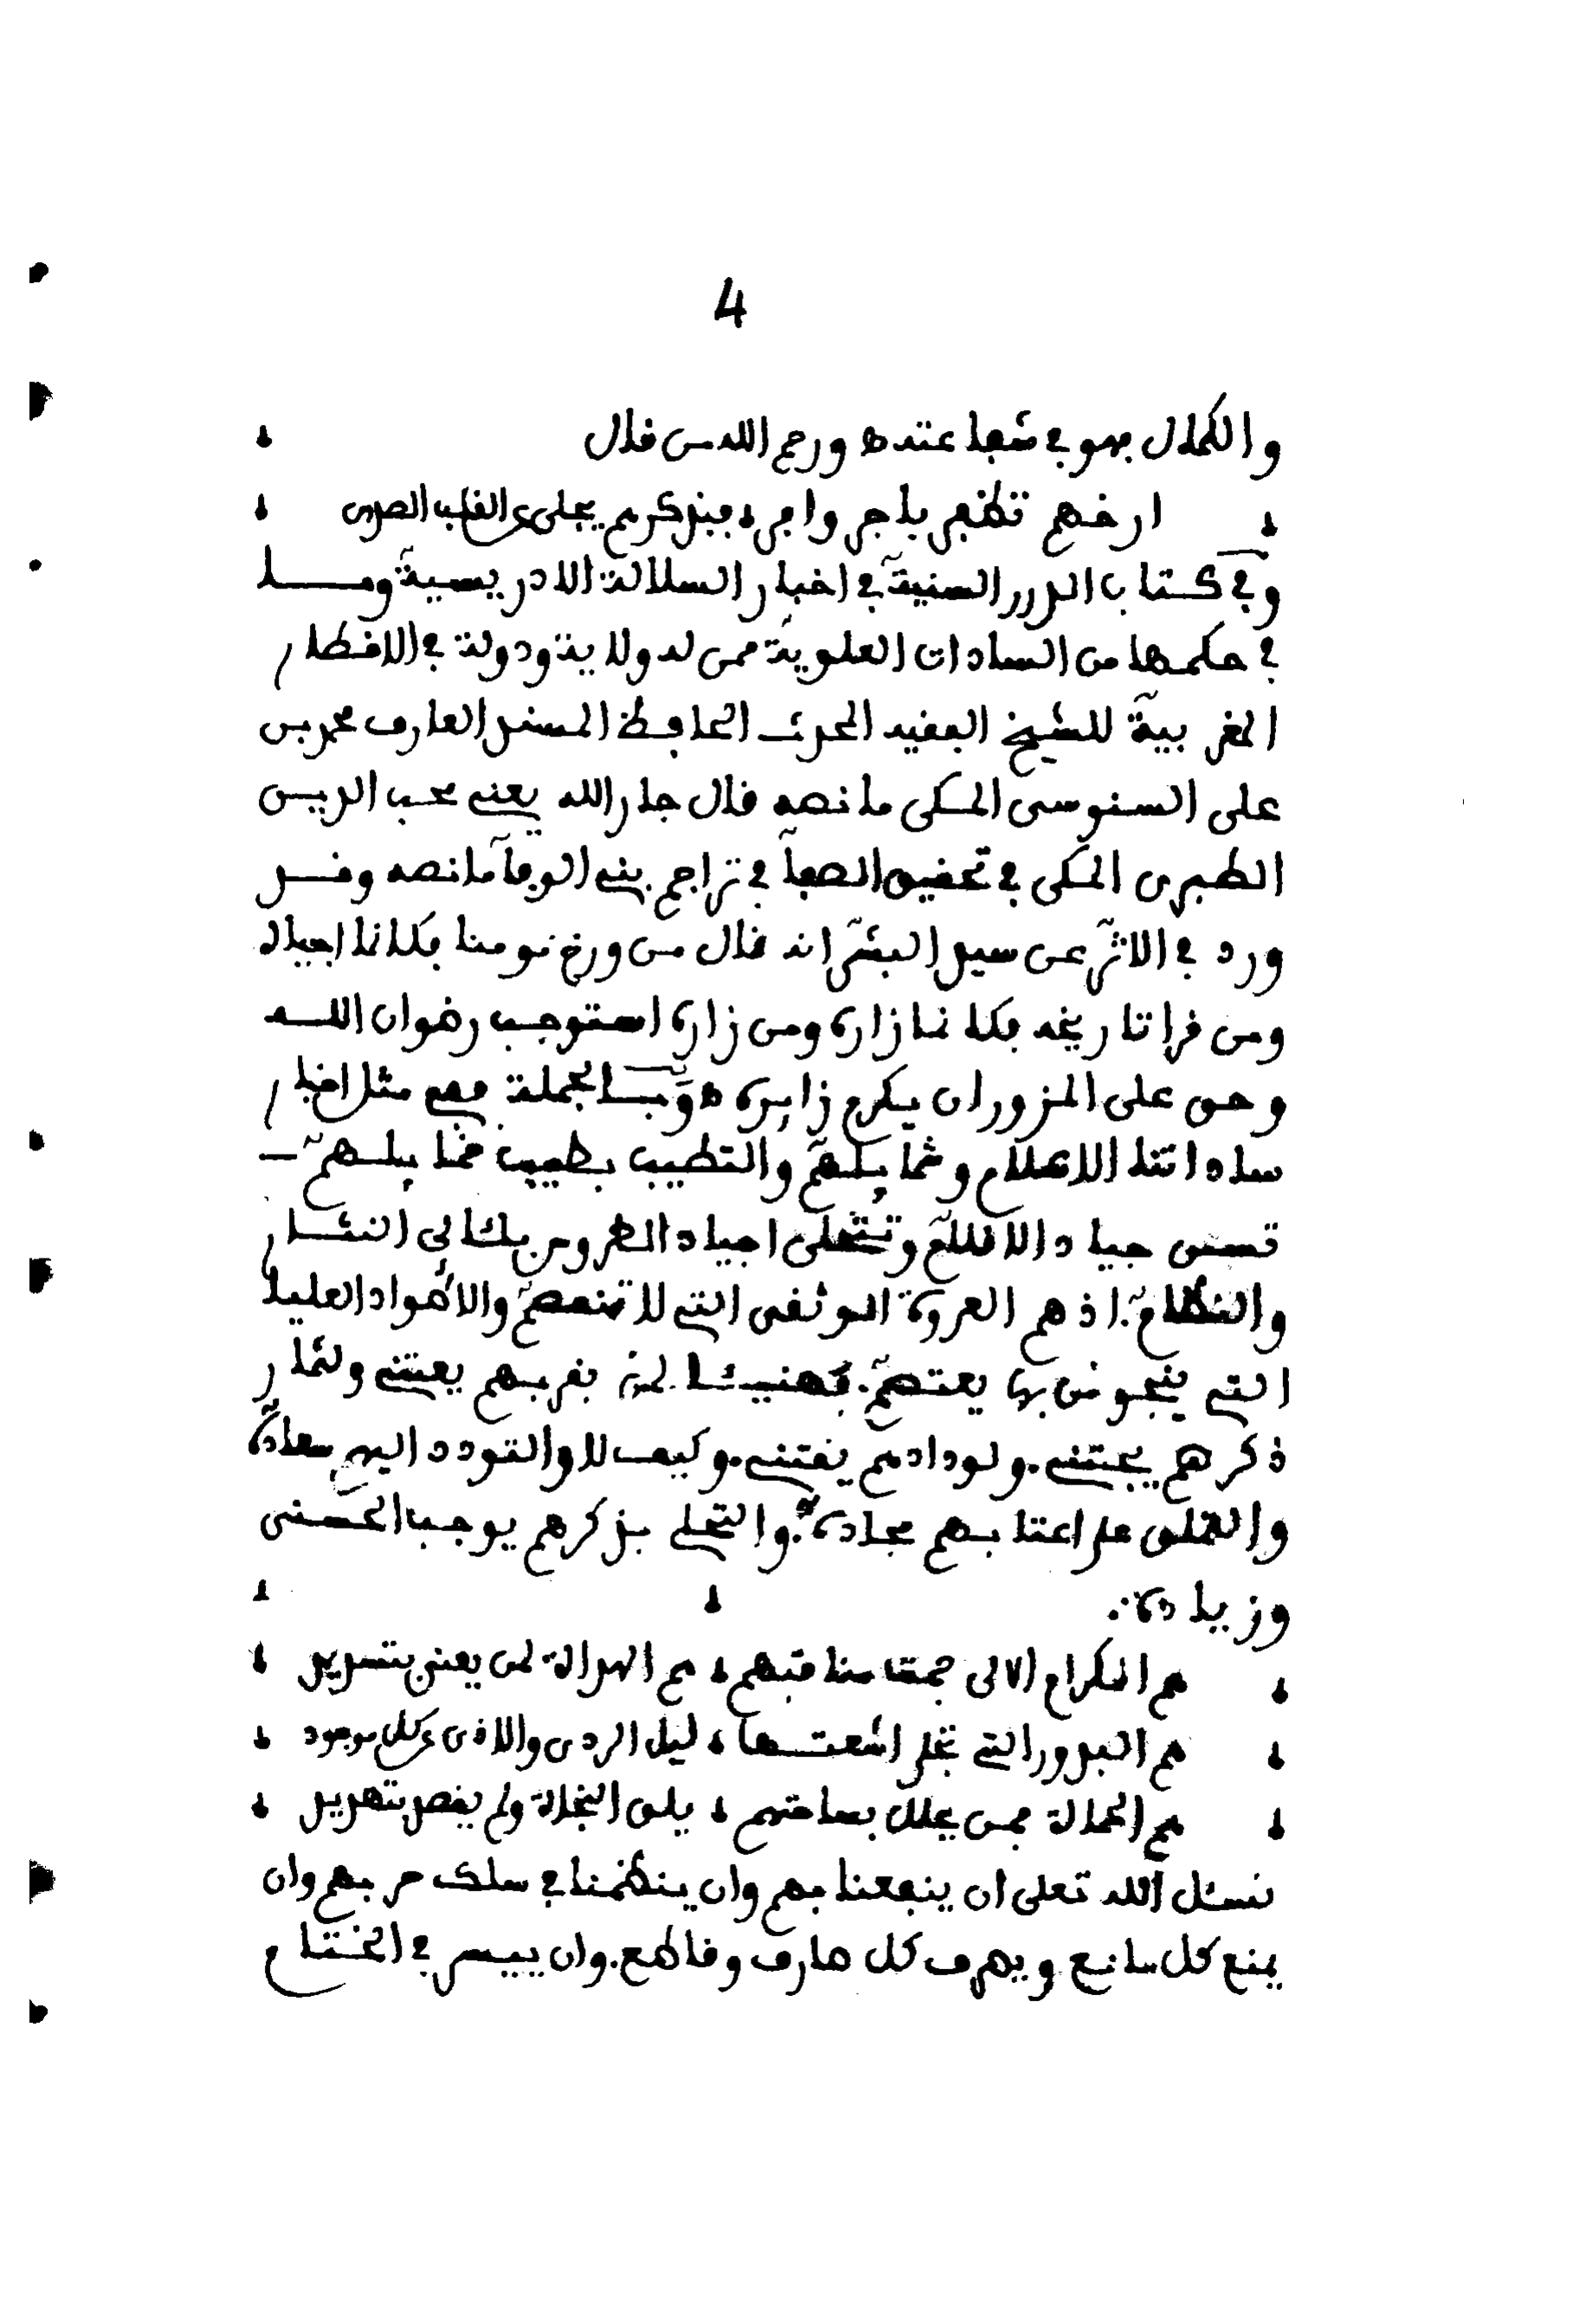 4
والكمال فهو في شفاعتده ورحم الله من قال
ارخهم تظفر باجر وافر فبذكرهم يجلى عن القلب الصدى
وفي كتاب الدرر السنية في اخبار السلالة الادريسية وما
في حكمها من السادات العلوية ممن له ولاية ودولة في الاقطار
المغربية للشيخ الفقيه المحدث الحافظ المسند العارف محمد بن
على السنوسى المكى ما نصه قال جار الله يعني محب الدين
الطبرى المكى في تحقيق الصفا في تراجم بني الوفا ما نصه وقد
ورد في الاثر عن سيد البشر انه قال من ورخ مومنا فكانما احياه
ومن قرا تاريخه فكانما زاره ومن زاره استوجب رضوان الله
وحق على المزور ان يكرم زايره ه وبالجملة فهي مثل اخبار
ساداتنا الاعلام وشمايلهم والتطيب بطيب خمايلهم
جياد الاقلام وتتحلى اجياد الطروس بلئالى النثار
والنظام. اذ هم العروة الوثقى التي لا تنفصم والاطواد العليا
التي ينجو من بها يعتصم. فهنيئا لمن بقربهم يعتني ولثمار
ذكرهم يجتني. ولودادهم يقتني. وكيف لا والتودد اليهم سعادة
والتملق على اعتابهم مجادة. والتحلي بذكرهم يوجب الحسنى
وزيادة.
هم الكرام الالى جمت مناقبهم هم الهداة لمن يعنى بتسديد
هم البدور التي تجلو اشعتها ليل الردى والاذى عن كل موجود
هم الحماة فمن يحلل بساحتهم يلق النجاة ولم يقصد بتهديد
نسئل الله تعلى ان ينفعنا بهم وان ينظمنا في سلك حزبهم وان
يمنع كل مانع ويصرف كل صارف وقاطع. وان ييسر في الختام